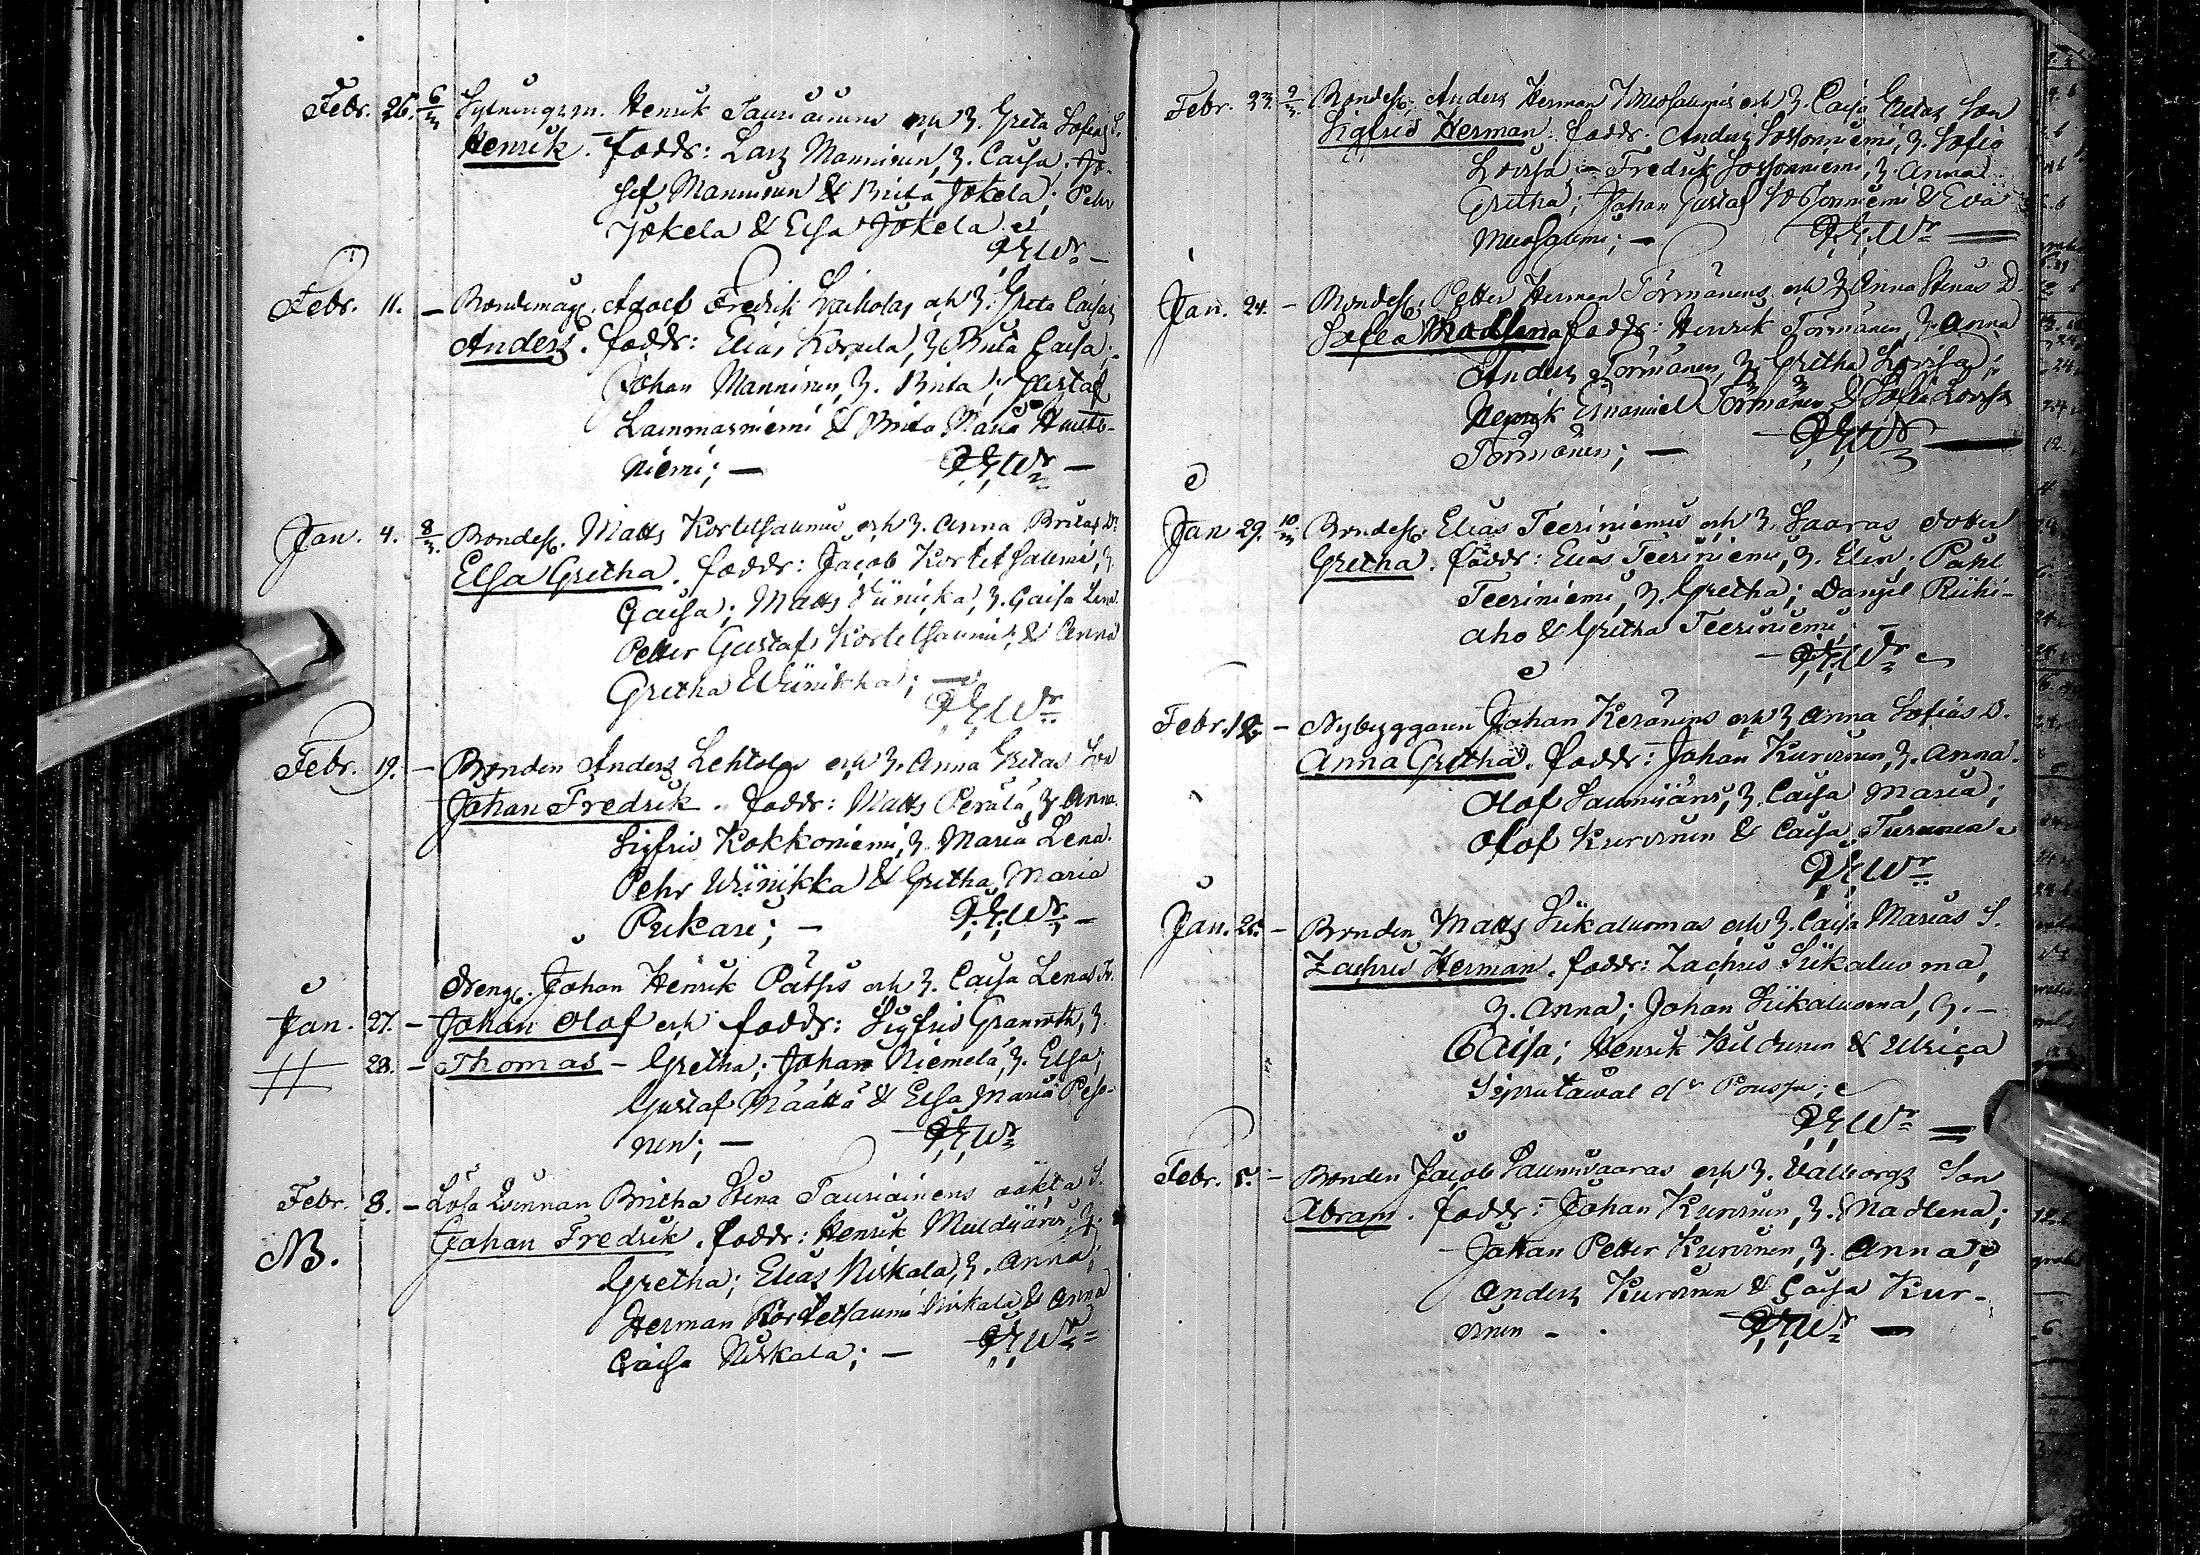 Febr. 26. 6/3 Sytningsm. Henrik Tauriainens och H. Greta Sofias S.
Henrik. Faddr: Lars Manninen, H. Caisa. Jo-
sef Manninen & Brita Jokela; Pehr
Jokela & Elsa Jokela
Febr. 11. – Bondemåg. Adolf Fredrik och H. Greta Caisas
Anders. Faddr: Elias Korpela, H. Brita Caisa;
Johan Manninen, H. Brita; Gustaf
Lammasniemi & Brita Maria Hauto-
niemi; –
Jan. 4. 8/3. Bondes. Matts Kortetsaumis och H. Anna Britas D.
Elsa Gretha. Faddr: Jacob Kortetsaumi, H.
Caisa; Matts Wiinikka, H. Caisa Lena.
Petter Gustaf Kortetsaumi, & Anna
Gretha Wiinikka; –
Febr. 19. – Bonden Anders Lehtolas och H. Anna Gretas Son
Johan Fredrik. Faddr: Matts Perälä, H. Anna.
Sigfrid Kokkoniemi, H. Maria Lena.
Pehr Wiinikka & Gretha Maria
Pukari; –
Drengs. Johan Henrik Pätsis och H. Caisa Lenas
Jan. 27. – Johan Olof och Faddr: Sigfrid Granroth, H.
28. – Thomas – Gretha; Johan Niemelä, H. Elsa;
Gustaf Määttä & Elsa Maria Peso-
nen; –
Febr. 8. – Lösa Qvinnan Britha Stina Tauriainens oäkta S.
NB. Johan Fredrik. Faddr: Henrik Mulduärvi, H.
Gretha; Elias Niskala, H. Anna;
Herman Kortetsaumi Niskala & Anna
Caisa Niskala; –
Febr. 23. 9/3 Bondes. Anders Herman och H. Caisa Gretas Son
Sigfrid Herman. Faddr: Anders, H. Sofia
Lovisa – Fredrik, H. Anna
Gretha; Johan Gustaf & Eva
Musosalmi; –
Jan. 24. – Bondes. Petter Herman Törmänens och H. Anna Stinas D.
Sofia Madlena Faddr: Henrik Törmänen, H. Anna
Anders Törmänen, H. Gretha Lovisa;
Henrik Emanuel Törmänen & Sofia Lovisa
Törmänen; –
Jan 29. 10/3 Bondes. Elias Teeriniemis och H. Saaras dotter
Gretha. Faddr: Elias Teeriniemi, H. Elin. Pahl
Teeriniemi, H. Gretha; Daniel Riihi-
aho & Gretha Teeriniemi –
Febr. 12. – Nybyggaren Johan Keränens och H. Anna Sofias D.
Anna Gretha. Faddr: Johan Kurvinen, H. Anna.
Olof Saunujärvi, H. Caisa Maria;
Olof Kurvinen & Caisa Turunen
Jan. 25. – Bonden Matts Siikaluomas och H. Caisa Marias S.
Zachris Herman. Faddr: Zachris Siikaluoma,
H. Anna; Johan Siikaluoma, H. –
Caisa; Henrik Hildunen & Ulrica
Febr. 5. – Bonden Jacob Saunuvaaras och H. Valborgs Son
Abram. Faddr: Johan Kurvinen, H. Madlena;
Johan Petter Kurvinen, H. Anna;
Anders Kurvinen & Caisa Kur-
vinen –